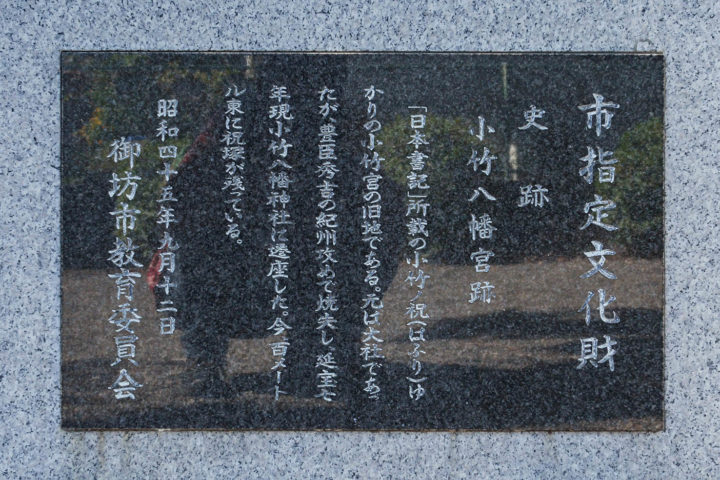 市指定文化財
史跡
小竹八幡宮跡
「日本書記」所載の小竹ノ祝(はふり)ゆ
かりの小竹宮の旧地である。元は大社であっ
たが、豊臣秀吉の紀州攻めで焼失し 延宝六
年現小竹八幡神社に遷座した。今 百メート
ル東に祝塚が残っている。
昭和四十五年九月十二日
御坊市教育委員会